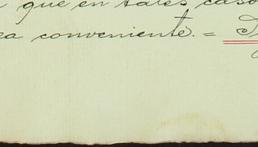 que en tales caso
ea conveniente. =